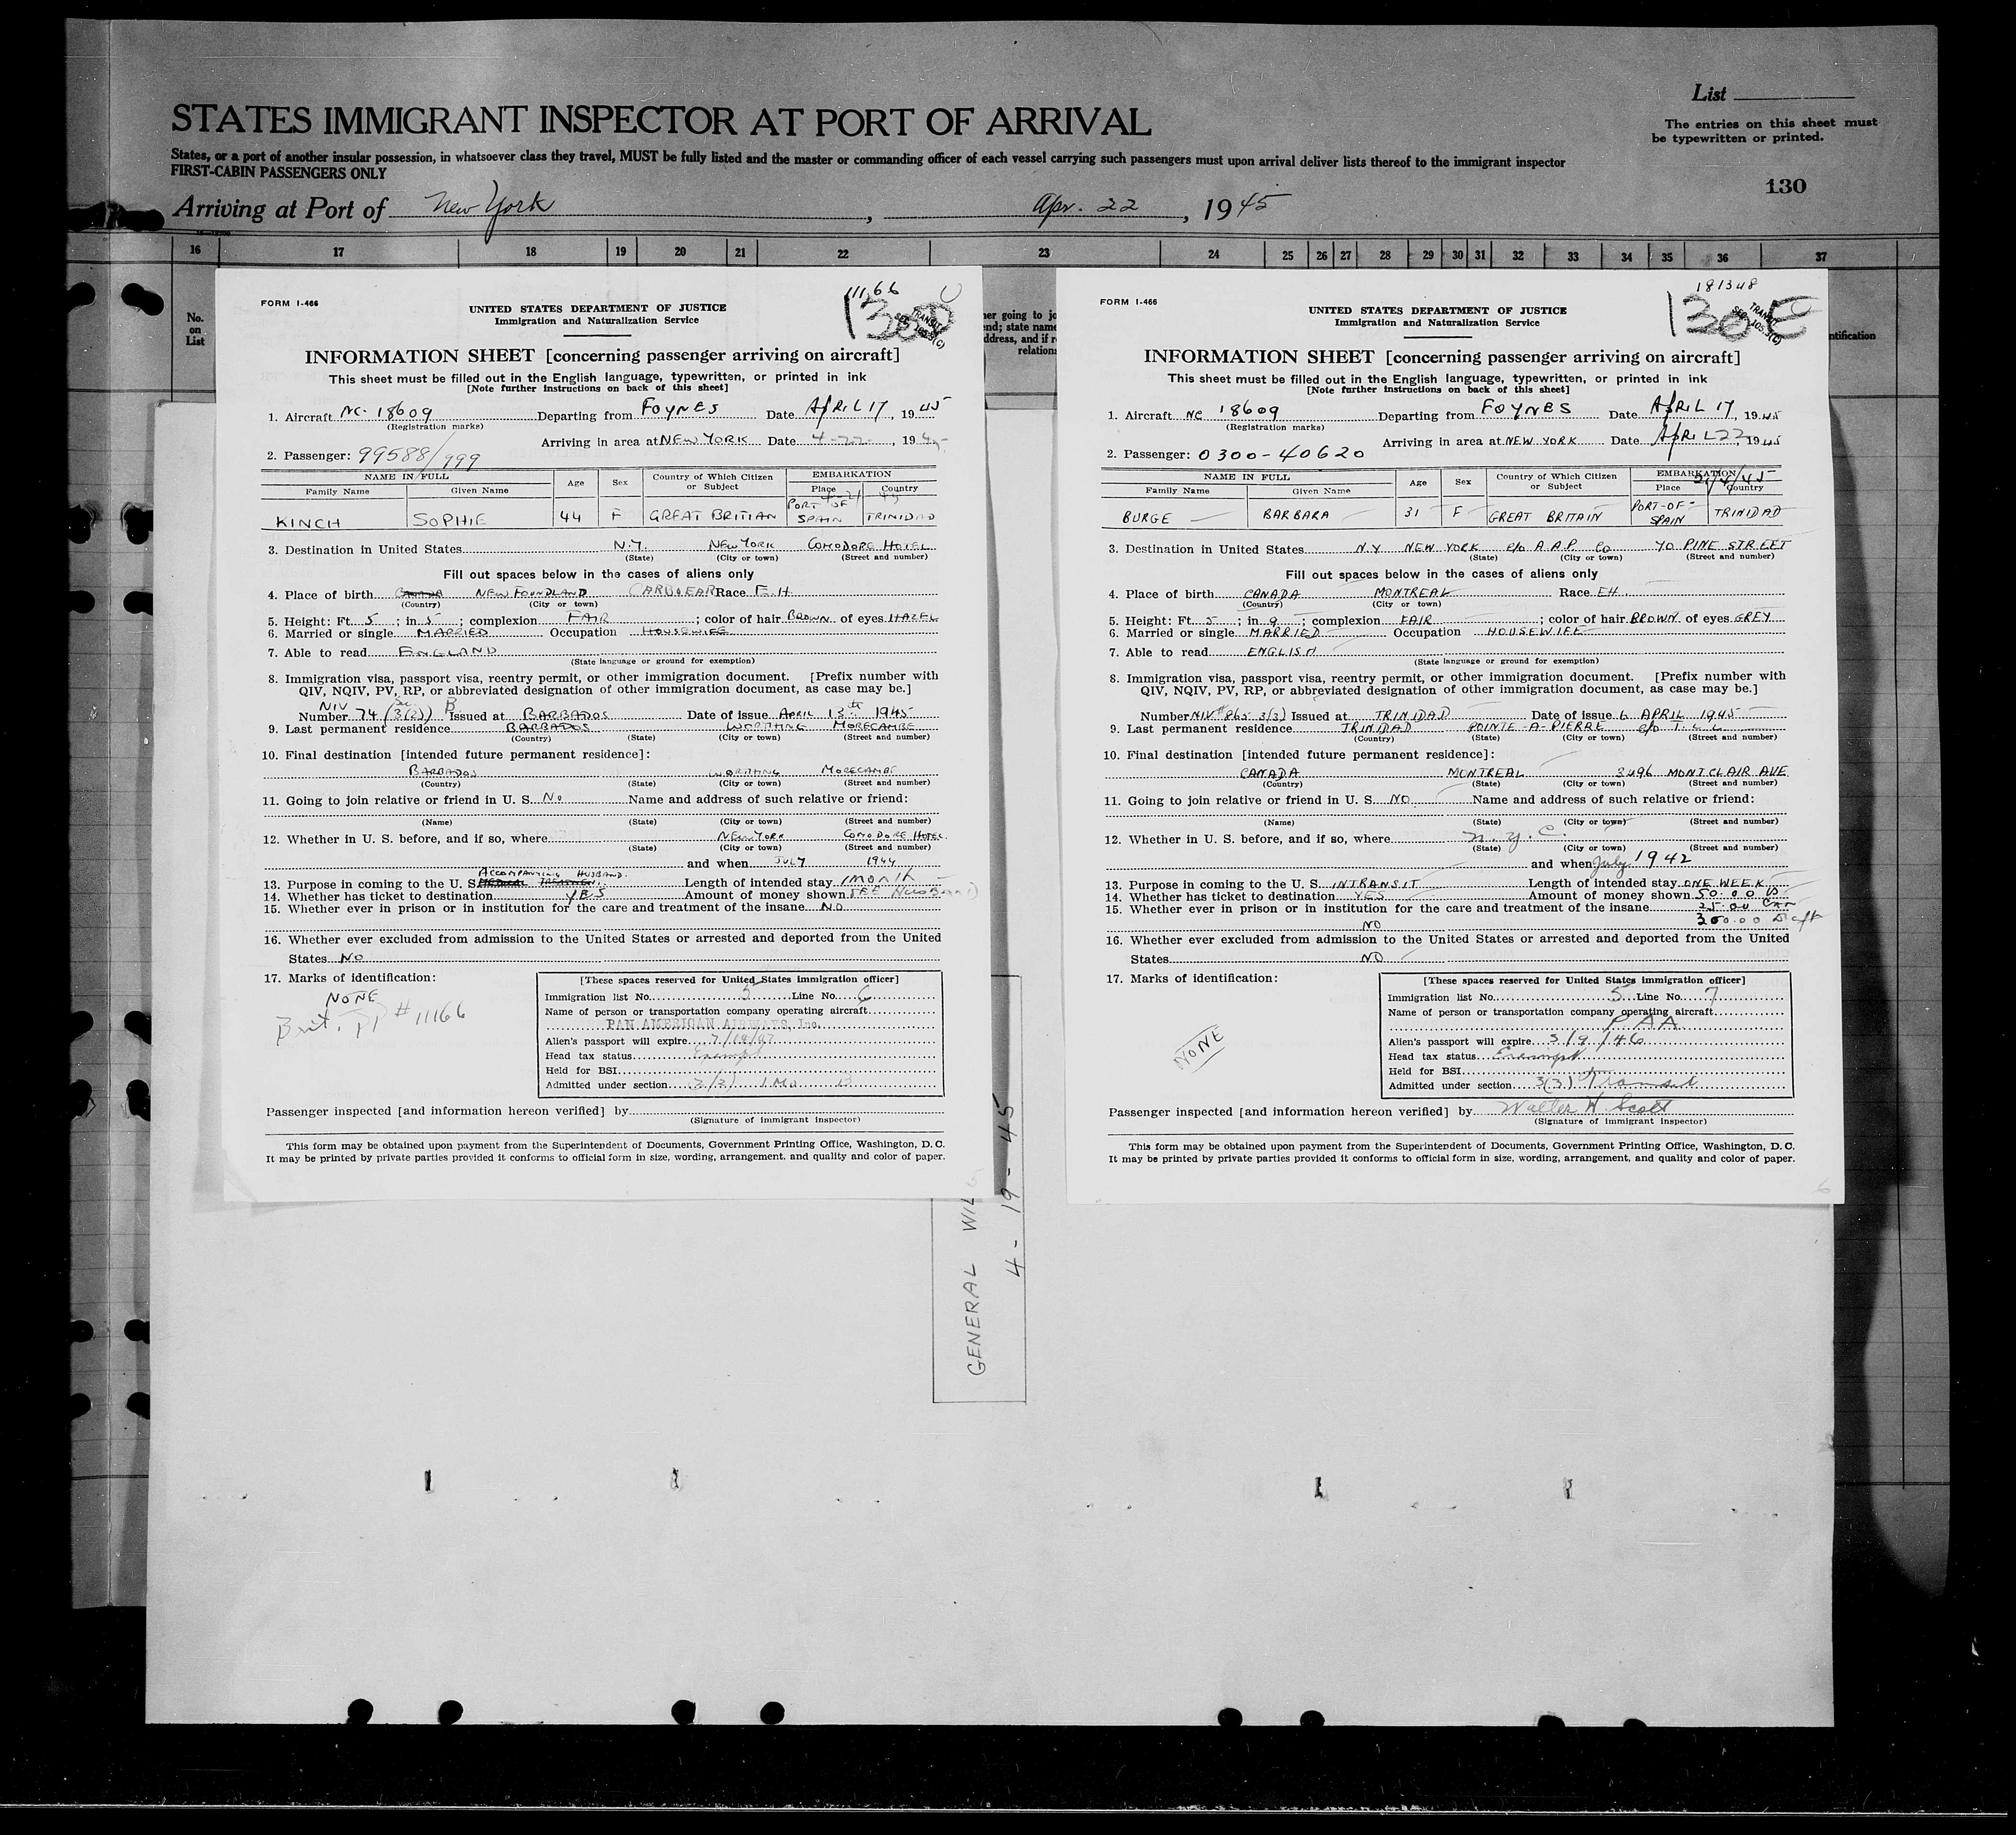 List
STATES IMMIGRANT INSPECTOR AT PORT OF ARRIVAL
The entries on this sheet must
be typewritten or printed.
States, or a port of another insular possession, in whatsoever class they travel, MUST be fully listed and the master or commanding officer of each vessel carrying such passengers must upon arrival deliver lists thereof to the immigrant inspector
FIRST-CABIN PASSENGERS ONLY
130
Arriving at Port of New York, Apr. 22, 1945
16 17 18 19 20 21 22 23 24 25 26 27 28 29 30 31 32 33 34 35 36 37
No.
on
List
FORM I-466
11166
UNITED STATES DEPARTMENT OF JUSTICE
Immigration and Naturalization Service
INFORMATION SHEET [concerning passenger arriving on aircraft]
This sheet must be filled out in the English language, typewritten, or printed in ink
[Note further instructions on back of this sheet]
1. Aircraft NC-18609 Departing from FOYNES Date APRIL 17, 1945
(Registration marks)
Arriving in area at NEW YORK Date 4-22-1945
2. Passenger: 99588/999
NAME IN FULL Age Sex Country of Which Citizen or Subject EMBARKATION
Family Name Given Name Place Country
KINCH SOPHIE 44 F GREAT BRITIAN PORT OF SPAIN TRINIDAD
3. Destination in United States N.Y. NEW YORK COMODORE HOTEL
(State) (City or town) (Street and number)
Fill out spaces below in the cases of aliens only
4. Place of birth NEW FOUNDLAND CARBOEAR Race E.H.
(Country) (City or town)
5. Height: Ft. 5; in 5; complexion FAIR; color of hair BROWN of eyes HAZEL
6. Married or single MARRIED Occupation HOUSEWIFE
7. Able to read ENGLAND
(State language or ground for exemption)
8. Immigration visa, passport visa, reentry permit, or other immigration document. [Prefix number with
QIV, NQIV, PV, RP, or abbreviated designation of other immigration document, as case may be.]
NIV
Number 74 (3(2)) B Issued at BARBADOS Date of issue APRIL 13th 1945
9. Last permanent residence BARBADOS WORTHING MORECAMBE
(Country) (State) (City or town) (Street and number)
10. Final destination [intended future permanent residence]:
BARBADOS WORTHING MORECAMBE
(Country) (State) (City or town) (Street and number)
11. Going to join relative or friend in U. S. No Name and address of such relative or friend:
(Name) (State) (City or town) (Street and number)
12. Whether in U. S. before, and if so, where NEW YORK COMODORE HOTEL
(State) (City or town) (Street and number)
and when JULY 1944
ACCOMPANYING HUSBAND.
13. Purpose in coming to the U. S. MEDICAL TREATMENT Length of intended stay 1 month
14. Whether has ticket to destination YES Amount of money shown SEE HUSBAND
15. Whether ever in prison or in institution for the care and treatment of the insane NO
16. Whether ever excluded from admission to the United States or arrested and deported from the United
States NO
17. Marks of identification:
NONE
Brit. PP #11166
[These spaces reserved for United States immigration officer]
Immigration list No. 5 Line No. 6
Name of person or transportation company operating aircraft
PAN AMERICAN AIRWAYS, Inc.
Alien's passport will expire
Head tax status Exempt
Held for BSI
Admitted under section 3(2) 1 Mo B
Passenger inspected [and information hereon verified] by
(Signature of immigrant inspector)
This form may be obtained upon payment from the Superintendent of Documents, Government Printing Office, Washington, D. C.
It may be printed by private parties provided it conforms to official form in size, wording, arrangement, and quality and color of paper.
FORM I-466
181348
UNITED STATES DEPARTMENT OF JUSTICE
Immigration and Naturalization Service
INFORMATION SHEET [concerning passenger arriving on aircraft]
This sheet must be filled out in the English language, typewritten, or printed in ink
[Note further instructions on back of this sheet]
1. Aircraft NC 18609 Departing from FOYNES Date APRIL 17, 1945
(Registration marks)
Arriving in area at NEW YORK Date APRIL 22 1945
2. Passenger: 0300-40620
NAME IN FULL Age Sex Country of Which Citizen or Subject EMBARKATION
Family Name Given Name Place Country
BURGE BARBARA 31 F GREAT BRITAIN PORT-OF-SPAIN TRINIDAD
3. Destination in United States N.Y NEW YORK c/o A.A.P. Co 70 PINE STREET
(State) (City or town) (Street and number)
Fill out spaces below in the cases of aliens only
4. Place of birth CANADA MONTREAL Race EH.
(Country) (City or town)
5. Height: Ft. 5; in 9; complexion FAIR; color of hair BROWN of eyes GREY
6. Married or single MARRIED Occupation HOUSEWIFE
7. Able to read ENGLISH
(State language or ground for exemption)
8. Immigration visa, passport visa, reentry permit, or other immigration document. [Prefix number with
QIV, NQIV, PV, RP, or abbreviated designation of other immigration document, as case may be.]
Number NIV# 865 3(3) Issued at TRINIDAD Date of issue 6 APRIL 1945
9. Last permanent residence TRINIDAD POINTE-A-PIERRE c/o T.L.L
(Country) (State) (City or town) (Street and number)
10. Final destination [intended future permanent residence]:
CANADA MONTREAL 3496 MONTCLAIR AVE
(Country) (State) (City or town) (Street and number)
11. Going to join relative or friend in U. S. NO Name and address of such relative or friend:
(Name) (State) (City or town) (Street and number)
12. Whether in U. S. before, and if so, where N.Y.C.
(State) (City or town) (Street and number)
and when July 1942
13. Purpose in coming to the U. S. INTRANSIT Length of intended stay ONE WEEK
14. Whether has ticket to destination YES Amount of money shown 50.00 US
15. Whether ever in prison or in institution for the care and treatment of the insane 25.00 Can
NO 300.00 Draft
16. Whether ever excluded from admission to the United States or arrested and deported from the United
States NO
17. Marks of identification:
NONE
[These spaces reserved for United States immigration officer]
Immigration list No. 5 Line No. 7
Name of person or transportation company operating aircraft
PAA
Alien's passport will expire 3/9/46
Head tax status Exempt
Held for BSI
Admitted under section 3(3) Transit
Passenger inspected [and information hereon verified] by Walter H Scott
(Signature of immigrant inspector)
This form may be obtained upon payment from the Superintendent of Documents, Government Printing Office, Washington, D. C.
It may be printed by private parties provided it conforms to official form in size, wording, arrangement, and quality and color of paper.
GENERAL
4-19-45